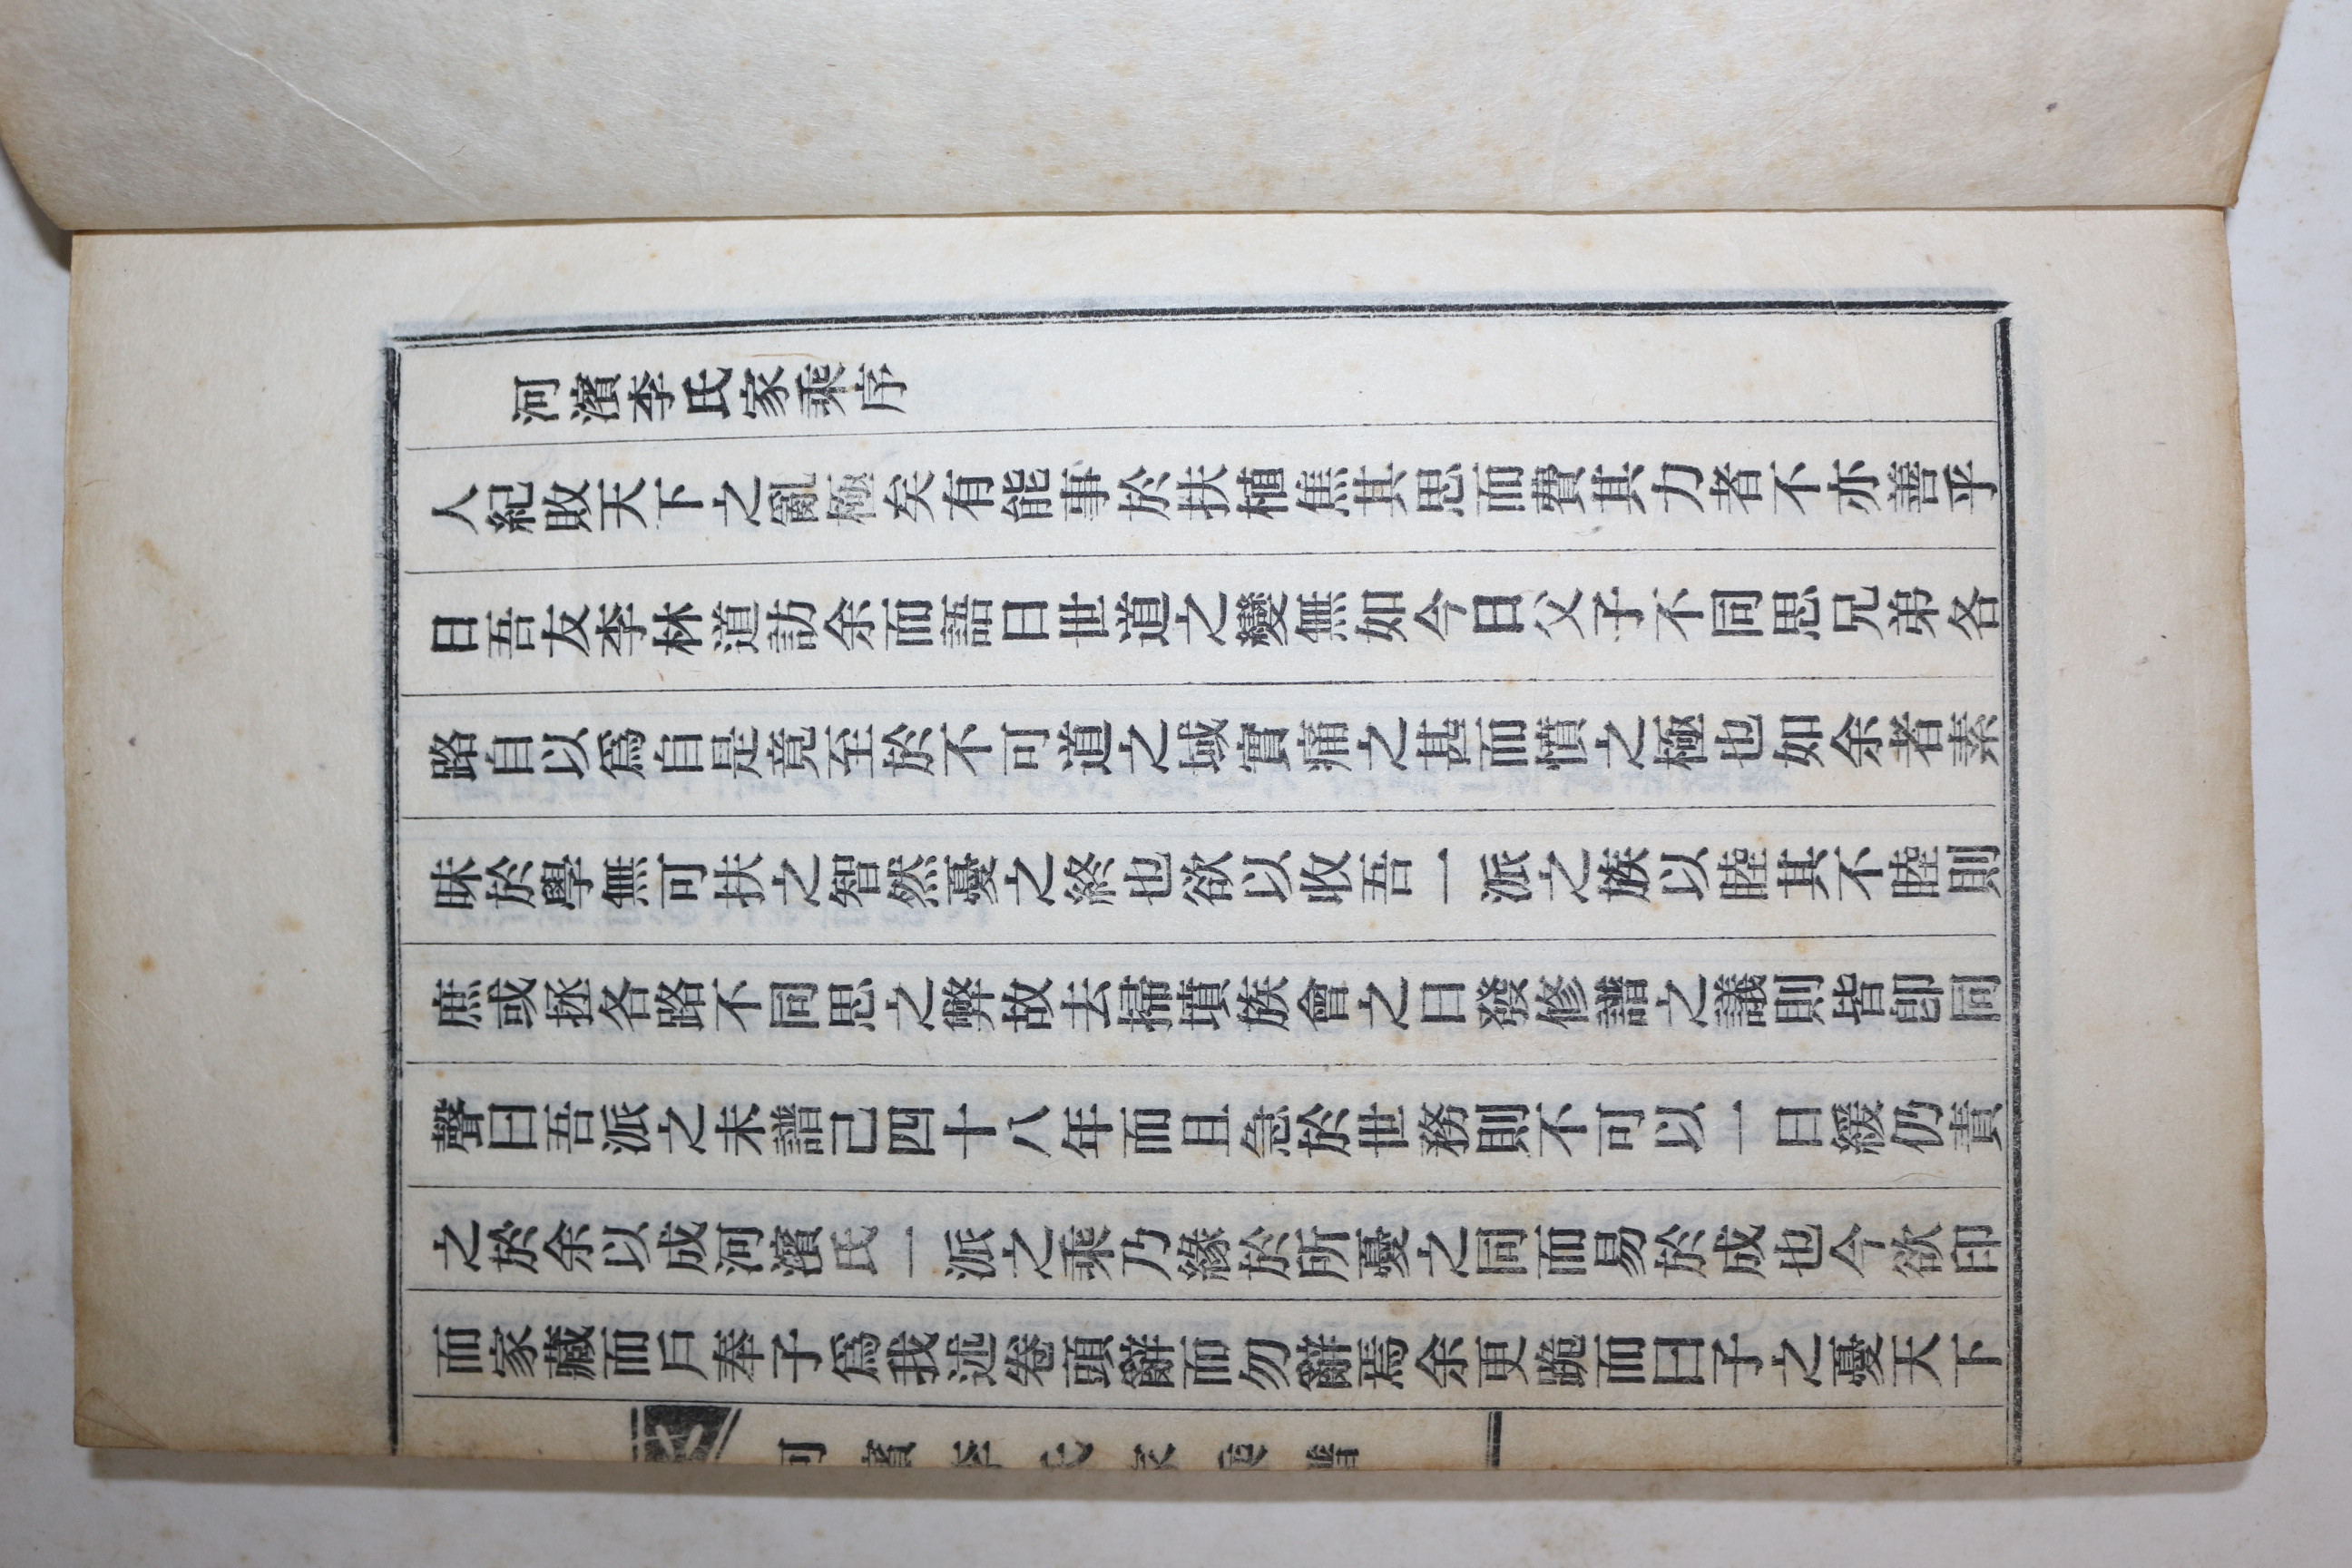 河濱李氏家乘序
人紀敗天下之亂極矣有能事於扶植焦其思而費其力者不亦善乎
日吾友李林道訪余而語曰世道之變無如今日父子不同思兄弟各
路自以爲自是竟至於不可道之域實痛之甚而憤之極也如余者素
昧於學無可扶之智然憂之終也欲以收吾一派之族以睦其不睦則
庶或拯各路不同思之弊故去掃墳族會之日發修譜之議則皆卽同
聲曰吾派之未譜已四十八年而且急於世務則不可以一日緩仍責
之於余以成河濱氏一派之乘乃緣於所憂之同而易於成也今欲印
而家藏而戶奉子爲我述卷頭辭而勿辭焉余更跪而曰子之憂天下
河濱李氏家